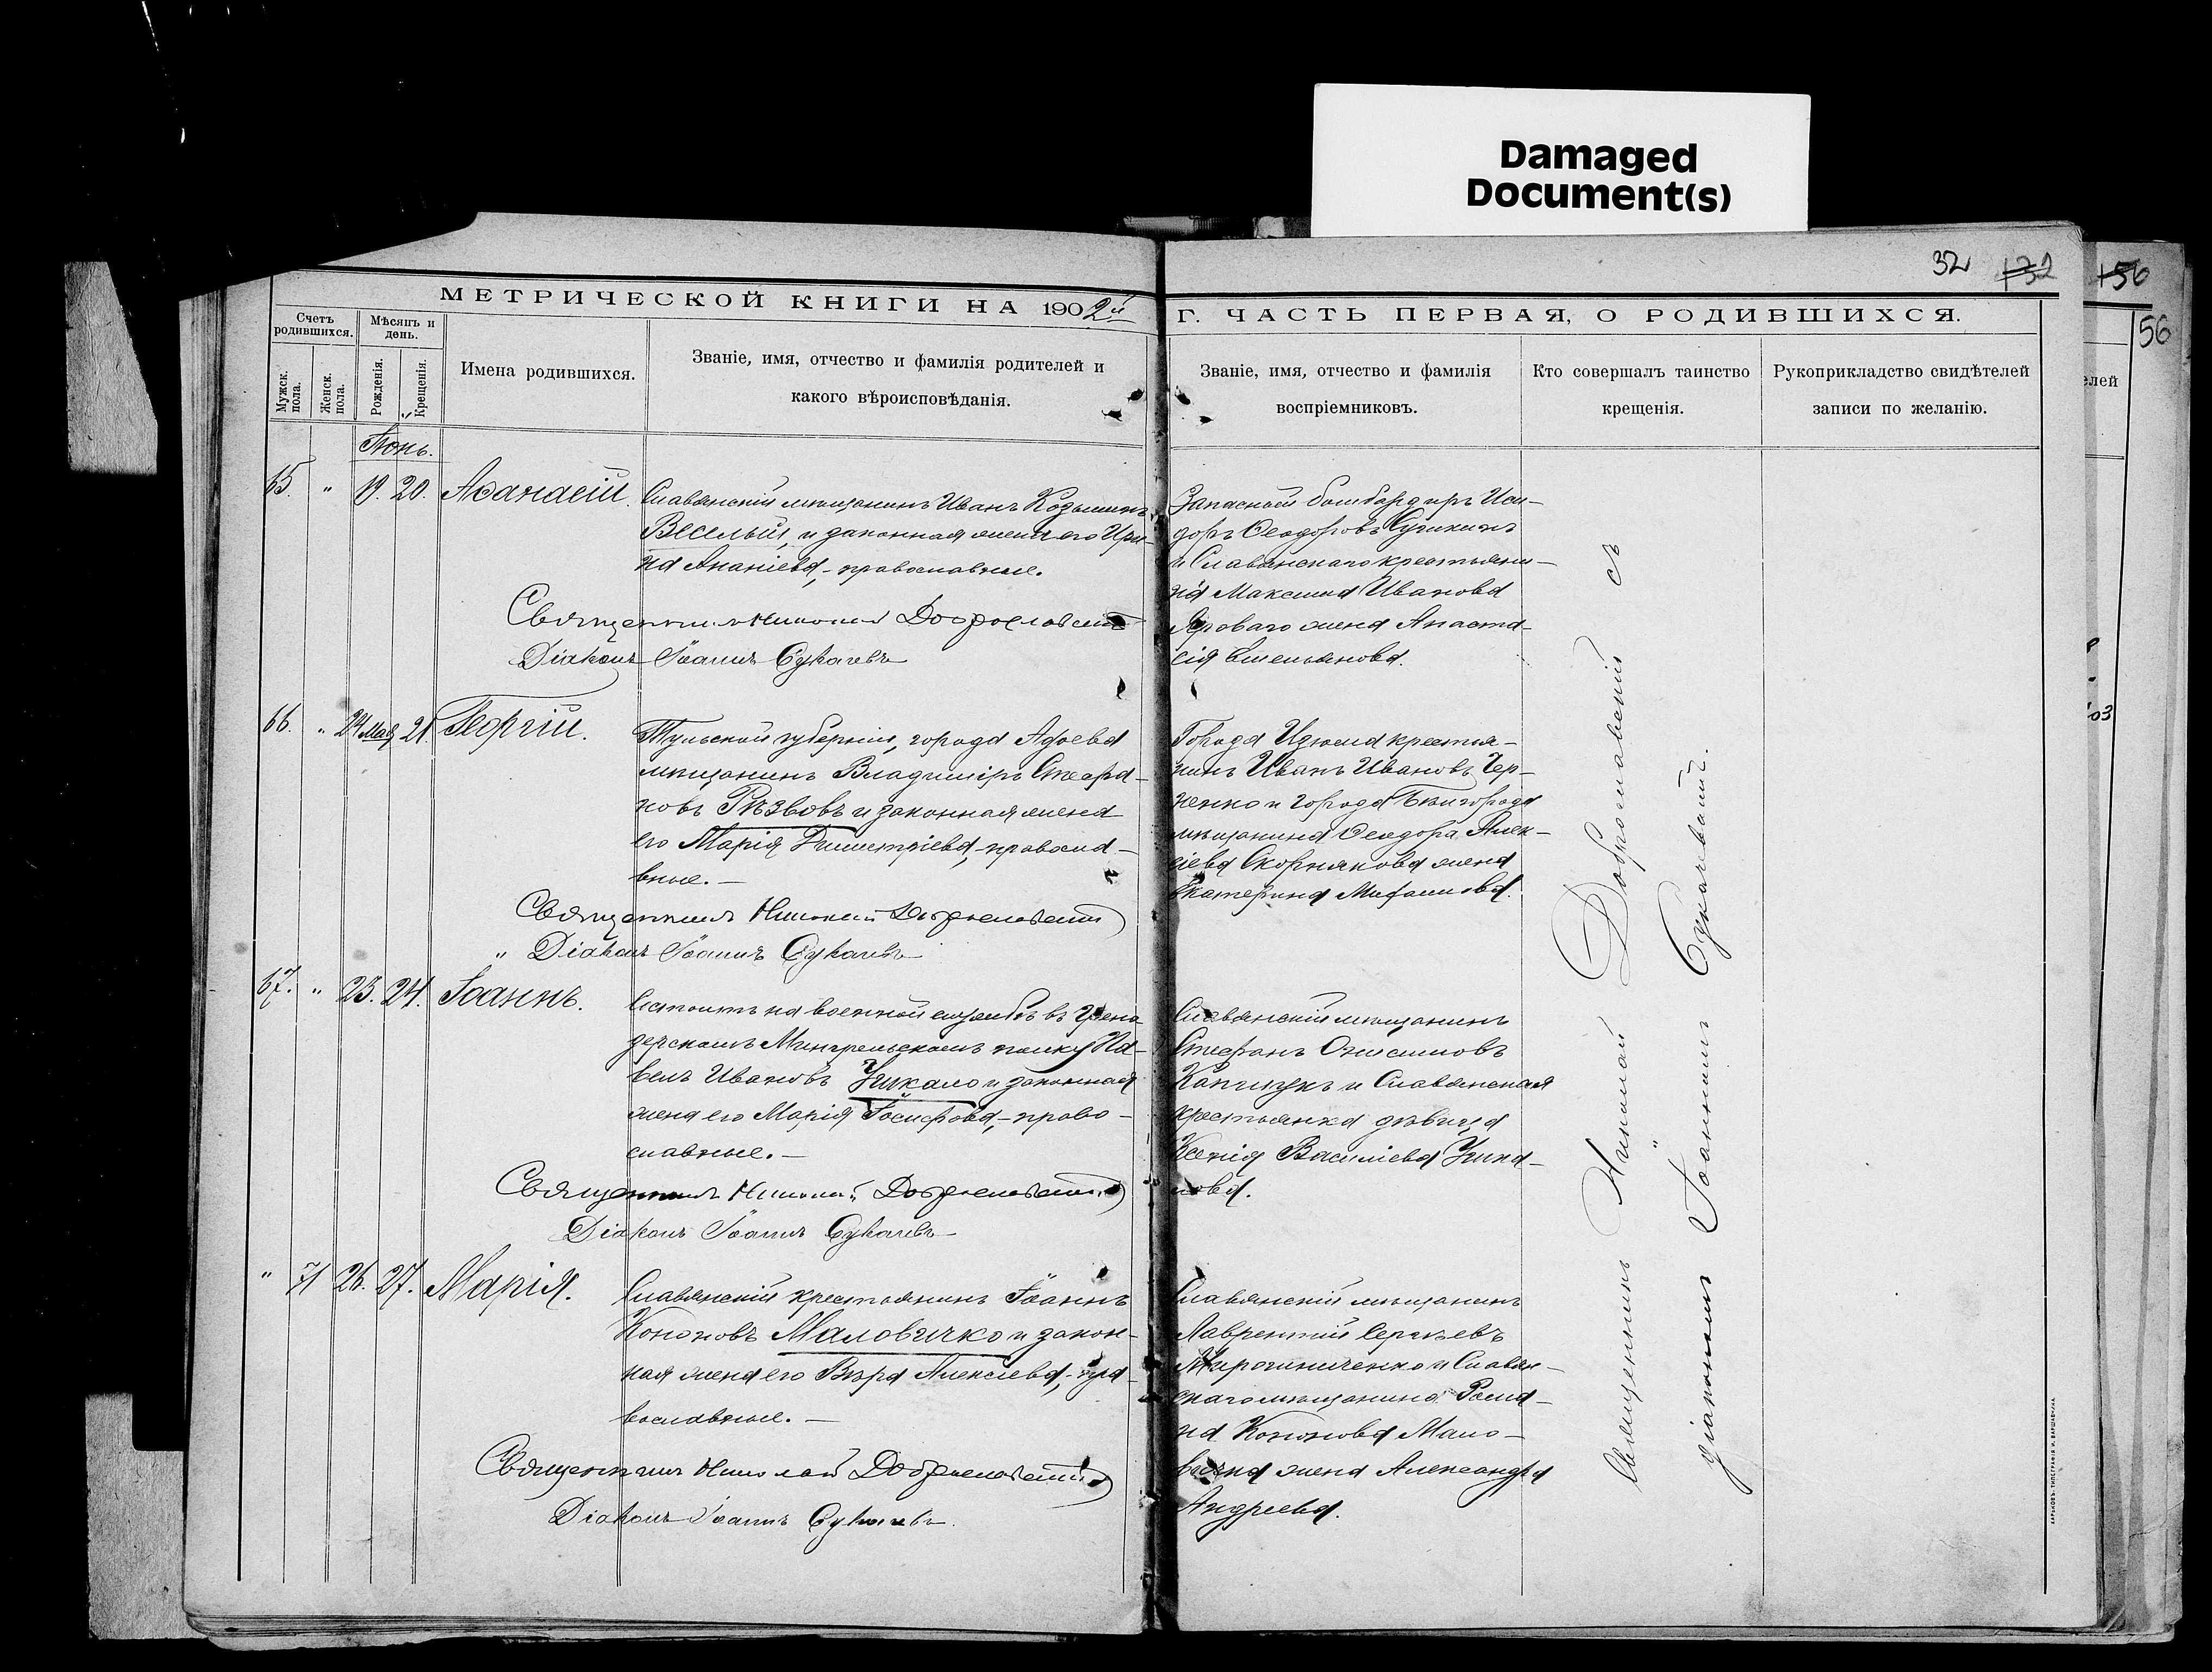 Damaged
Document(s)
32 132 156
56
МЕТРИЧЕСКОЙ КНИГИ НА 1902й
Г. ЧАСТЬ ПЕРВАЯ, О РОДИВШИХСЯ.
Счетъ родившихся.
Мѣсяцъ и день.
Мужск. пола.
Женск. пола.
Рожденія.
Крещенія.
Имена родившихся.
Званіе, имя, отчество и фамилія родителей и
какого вѣроисповѣданія.
Званіе, имя, отчество и фамилія
воспріемниковъ.
Кто совершалъ таинство
крещенія.
Рукоприкладство свидѣтелей
записи по желанію.
елей
Іюнь.
65. " 19. 20. Аѳанасій.
Славянскій мѣщанинъ Иванъ Козьминъ
Веселый, и законная жена его Ири-
на Ананіева, православные.
Священникъ Николай Доброславскій
Діаконъ Іоаннъ Сукачевъ
Запасный бомбардиръ Иси-
доръ Ѳеодоровъ
и Славянскаго крестьяни-
на Максима Иванова
Яроваго жена Анаста-
сія Емельянова.
66. " 24 Мая 21. Георгій.
Тульской губерніи, города Адоева
мѣщанинъ Владиміръ Стефа-
новъ Рѣзвовъ и законная жена
его Марія Димитріева, правосла-
вные. —
Священникъ Николай Доброславскій
" Діаконъ Іоаннъ Сукачевъ
Города Изюма крестья-
нинъ Иванъ Ивановъ Чер-
ненко и города Бѣлгорода
мѣщанина Ѳеодора Алек-
сіева Скорнякова жена
Екатерина
67. " 23. 24. Іоаннъ.
Состоитъ на военной службѣ въ Грена-
дерскомъ Мингрельскомъ полку Па-
велъ Ивановъ Чикало и законная
жена его Марія Іосифова, право-
славные. —
Священникъ Николай Доброславскій
Діаконъ Іоаннъ Сукачевъ
Славянскій мѣщанинъ
Стефанъ Онисимовъ
и Славянская
крестьянка дѣвица
Ксенія Василіева Чика-
лова.
" 71 26. 27. Марія.
Славянскій крестьянинъ Іоаннъ
Кононовъ Маловичко и закон-
ная жена его Вѣра Алексіева, пра-
вославные. —
Священникъ Николай Доброславскій
Діаконъ Іоаннъ Сукачевъ.
Славянскій мѣщанинъ
Лаврентій Сергѣевъ
Мирошниченко и Славян-
скаго мѣщанина Рома-
на Кононова Мало-
вичка жена Александра
Андреева.
Священникъ Николай Доброславскій съ
діакономъ Іоанномъ Сукачевымъ.
ХАРЬКОВЪ. ТИПОГРАФІЯ И. ВАРШАВЧИКА
03